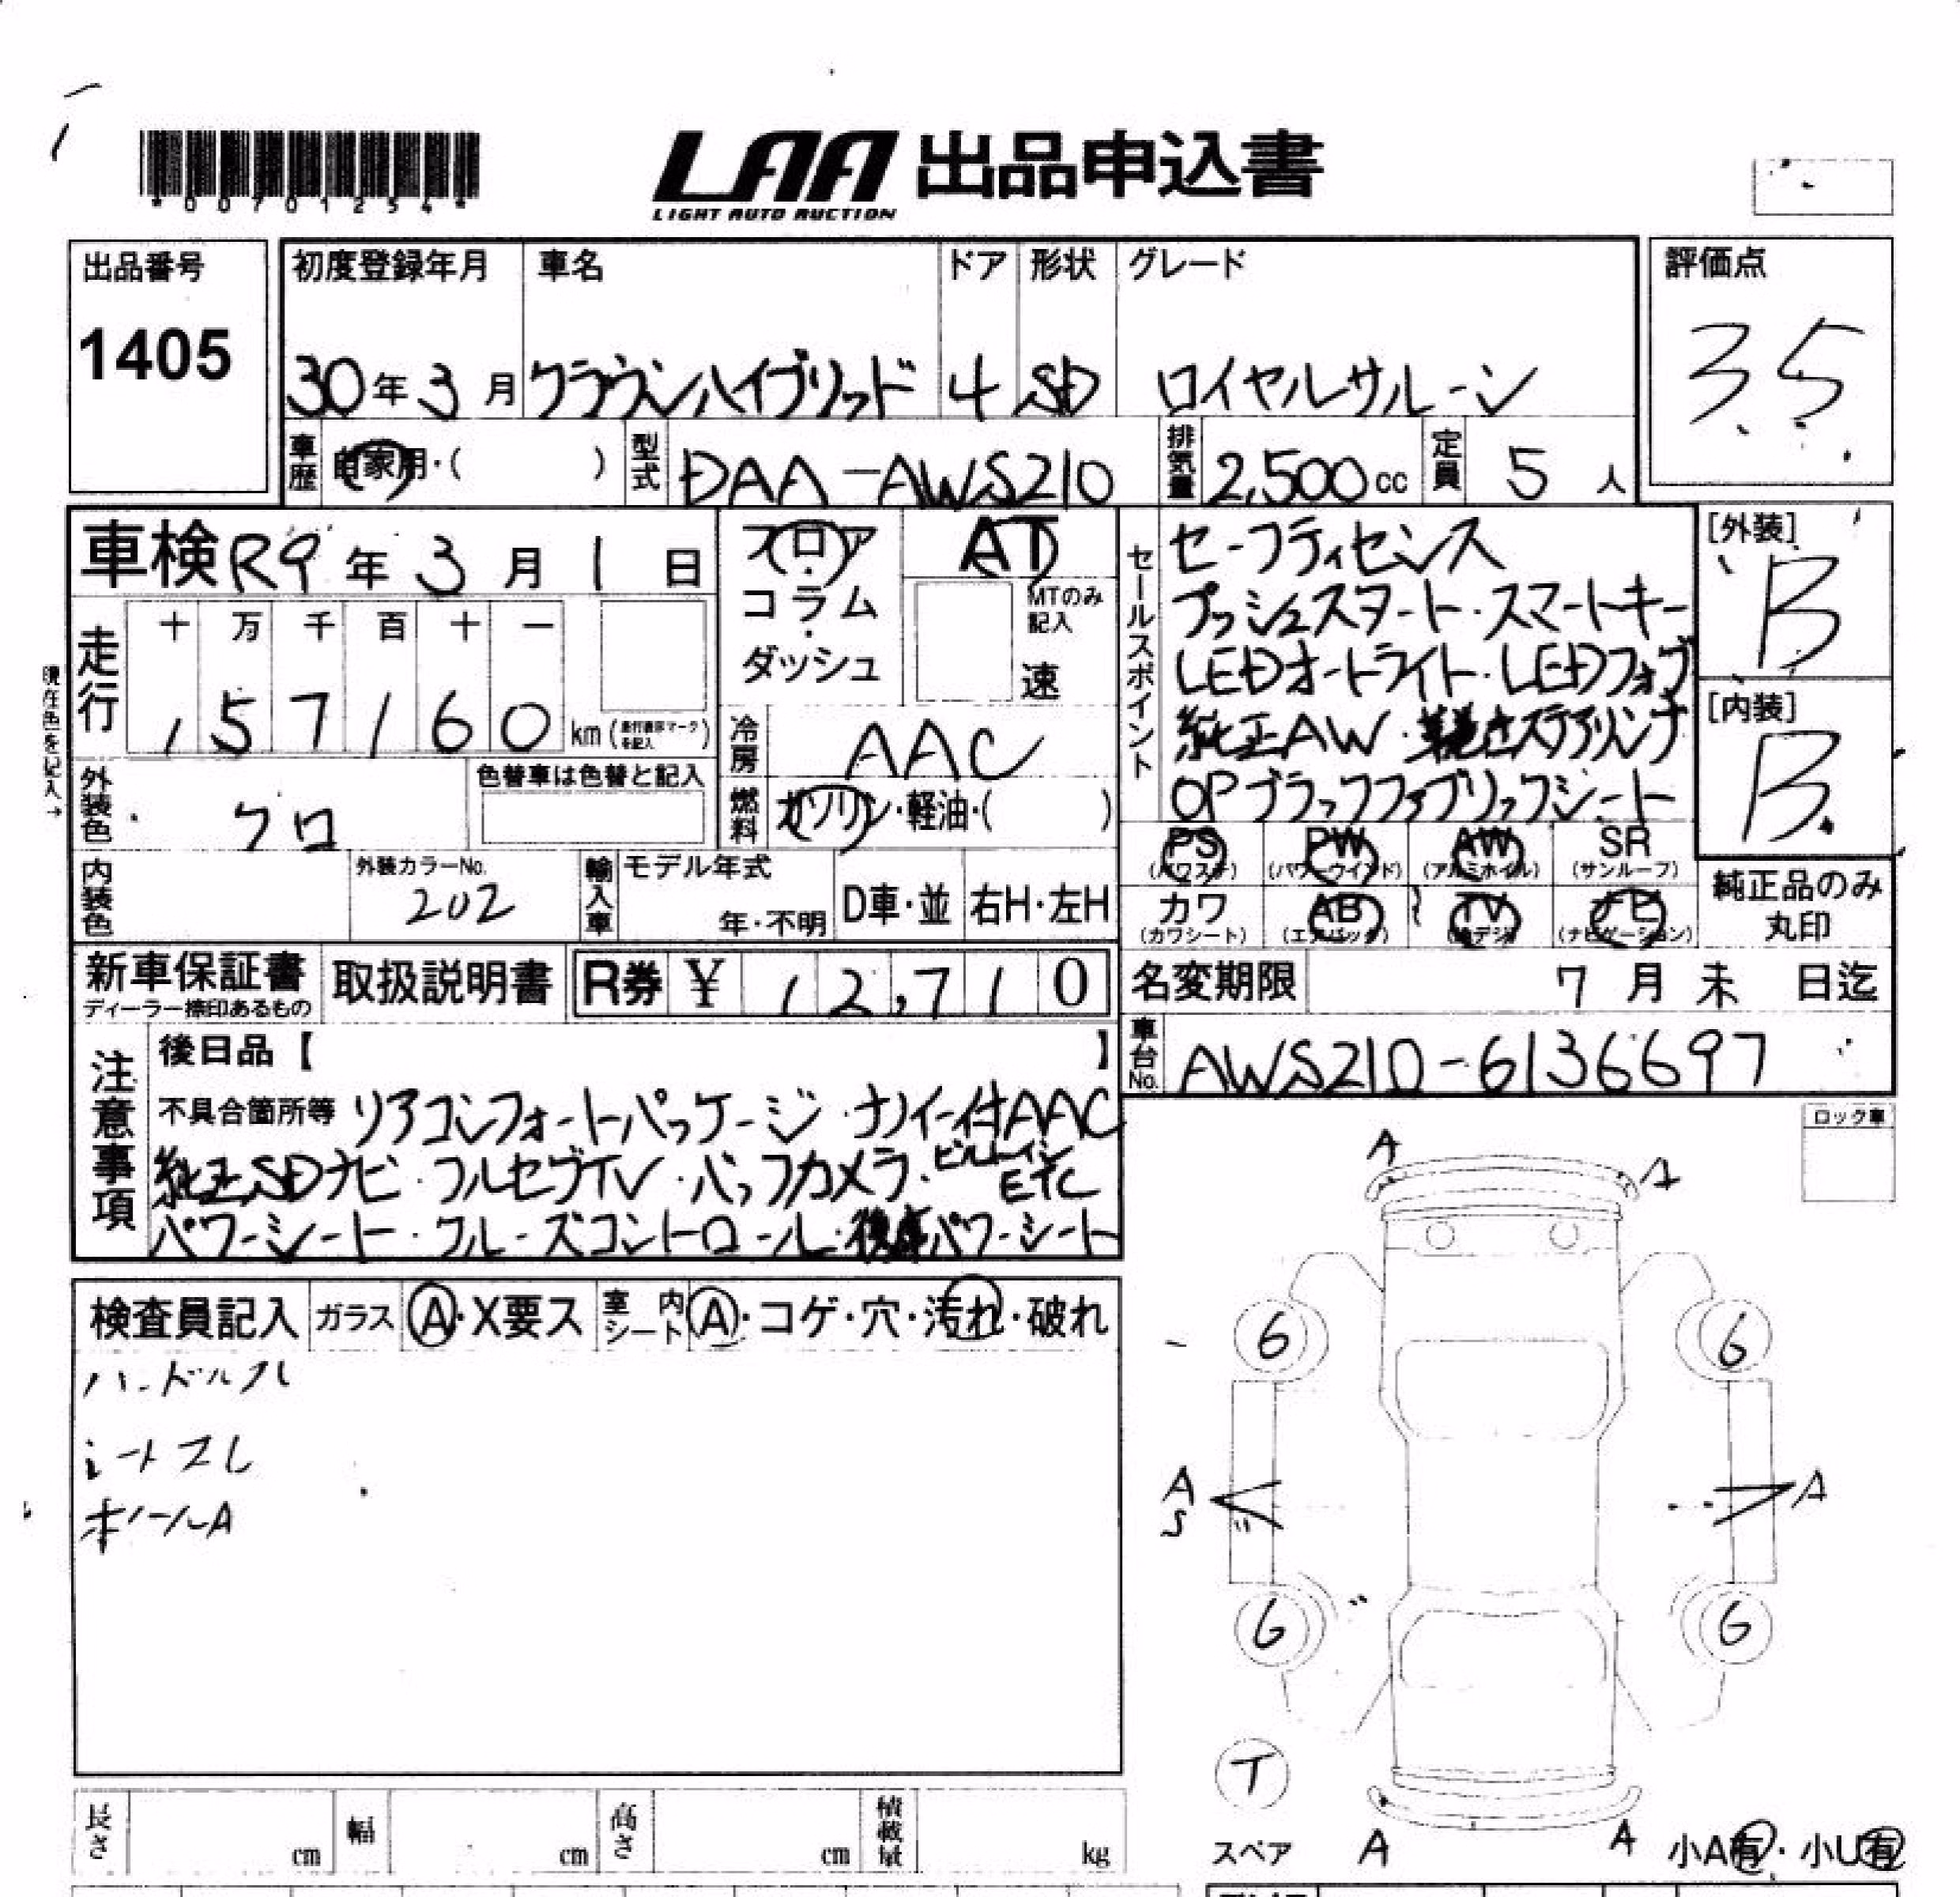 *00701254*
LAA 出品申込書
LIGHT AUTO AUCTION
出品番号
1405
初度登録年月 車名 ドア 形状 グレード
30年3月 クラウンハイブリッド 4 SD ロイヤルサルーン
評価点
3.5
車歴 自家用・( ) 型式 DAA-AWS210 排気量 2,500cc 定員 5人
車検 R9年3月1日
フロア・コラム・ダッシュ
AT
MTのみ記入
速
セールスポイント
セーフティセンス
プッシュスタート・スマートキー
LEDオートライト・LEDフォグ
純正AW・革巻きステアリング
OPブラックファブリックシート
[外装]
B
[内装]
B
現在色を記入→
走行 十 万 千 百 十 一
157160 km(走行表示マークを記入)
冷房 AAC
燃料 ガソリン・軽油・( )
外装色 クロ
色替車は色替と記入
内装色
外装カラーNo.
202
輸入車 モデル年式
年・不明 D車・並 右H・左H
PS (パワステ) PW (パワーウインド) AW (アルミホイル) SR (サンルーフ)
カワ (カワシート) AB (エアバック) TV (地デジ) ナビ (ナビゲーション)
純正品のみ丸印
新車保証書
ディーラー捺印あるもの
取扱説明書 R券 ¥ 12,710
名変期限 7月末日迄
車台No. AWS210-6136697
注意事項
後日品【 】
不具合箇所等 リアコンフォートパッケージ・ナノイー付AAC
純正SDナビ・フルセグTV・バックカメラ・ビルトインETC
パワーシート・クルーズコントロール・後席パワーシート
ロック車
検査員記入 ガラス A・X要ス 室内シート A・コゲ・穴・汚れ・破れ
ハンドルスレ
シートスレ
ホイールA
A A
6 6
A S A
6 6
T
スペア
A A
小A有・小U有
長さ cm 幅 cm 高さ cm 積載量 kg